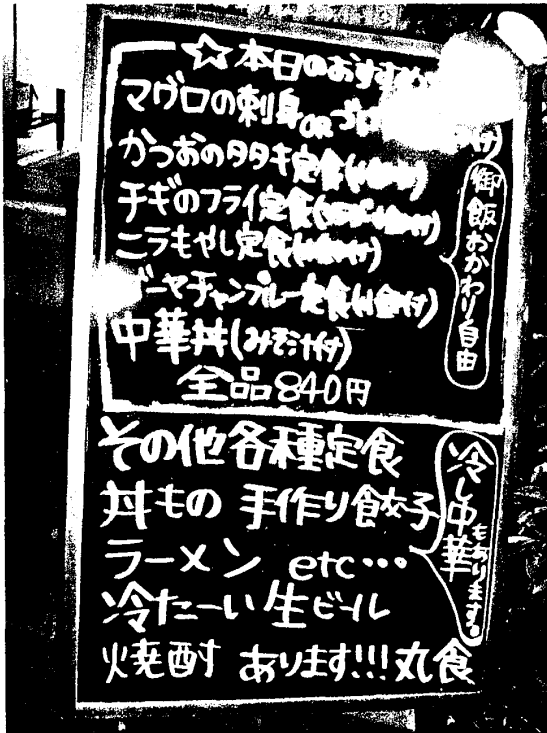 ☆本日のおすすめ
マグロの刺身OR
かつおのタタキ定食
チギのフライ定食
ニラもやし定食
ーヤチャンプルー定食
中華丼(みそ汁付)
全品840円
御飯おかわり自由
その他各種定食
丼もの 手作り餃子
ラーメン etc…
冷たーい生ビール
焼酎 あります!!!丸食
冷し中華もあります。